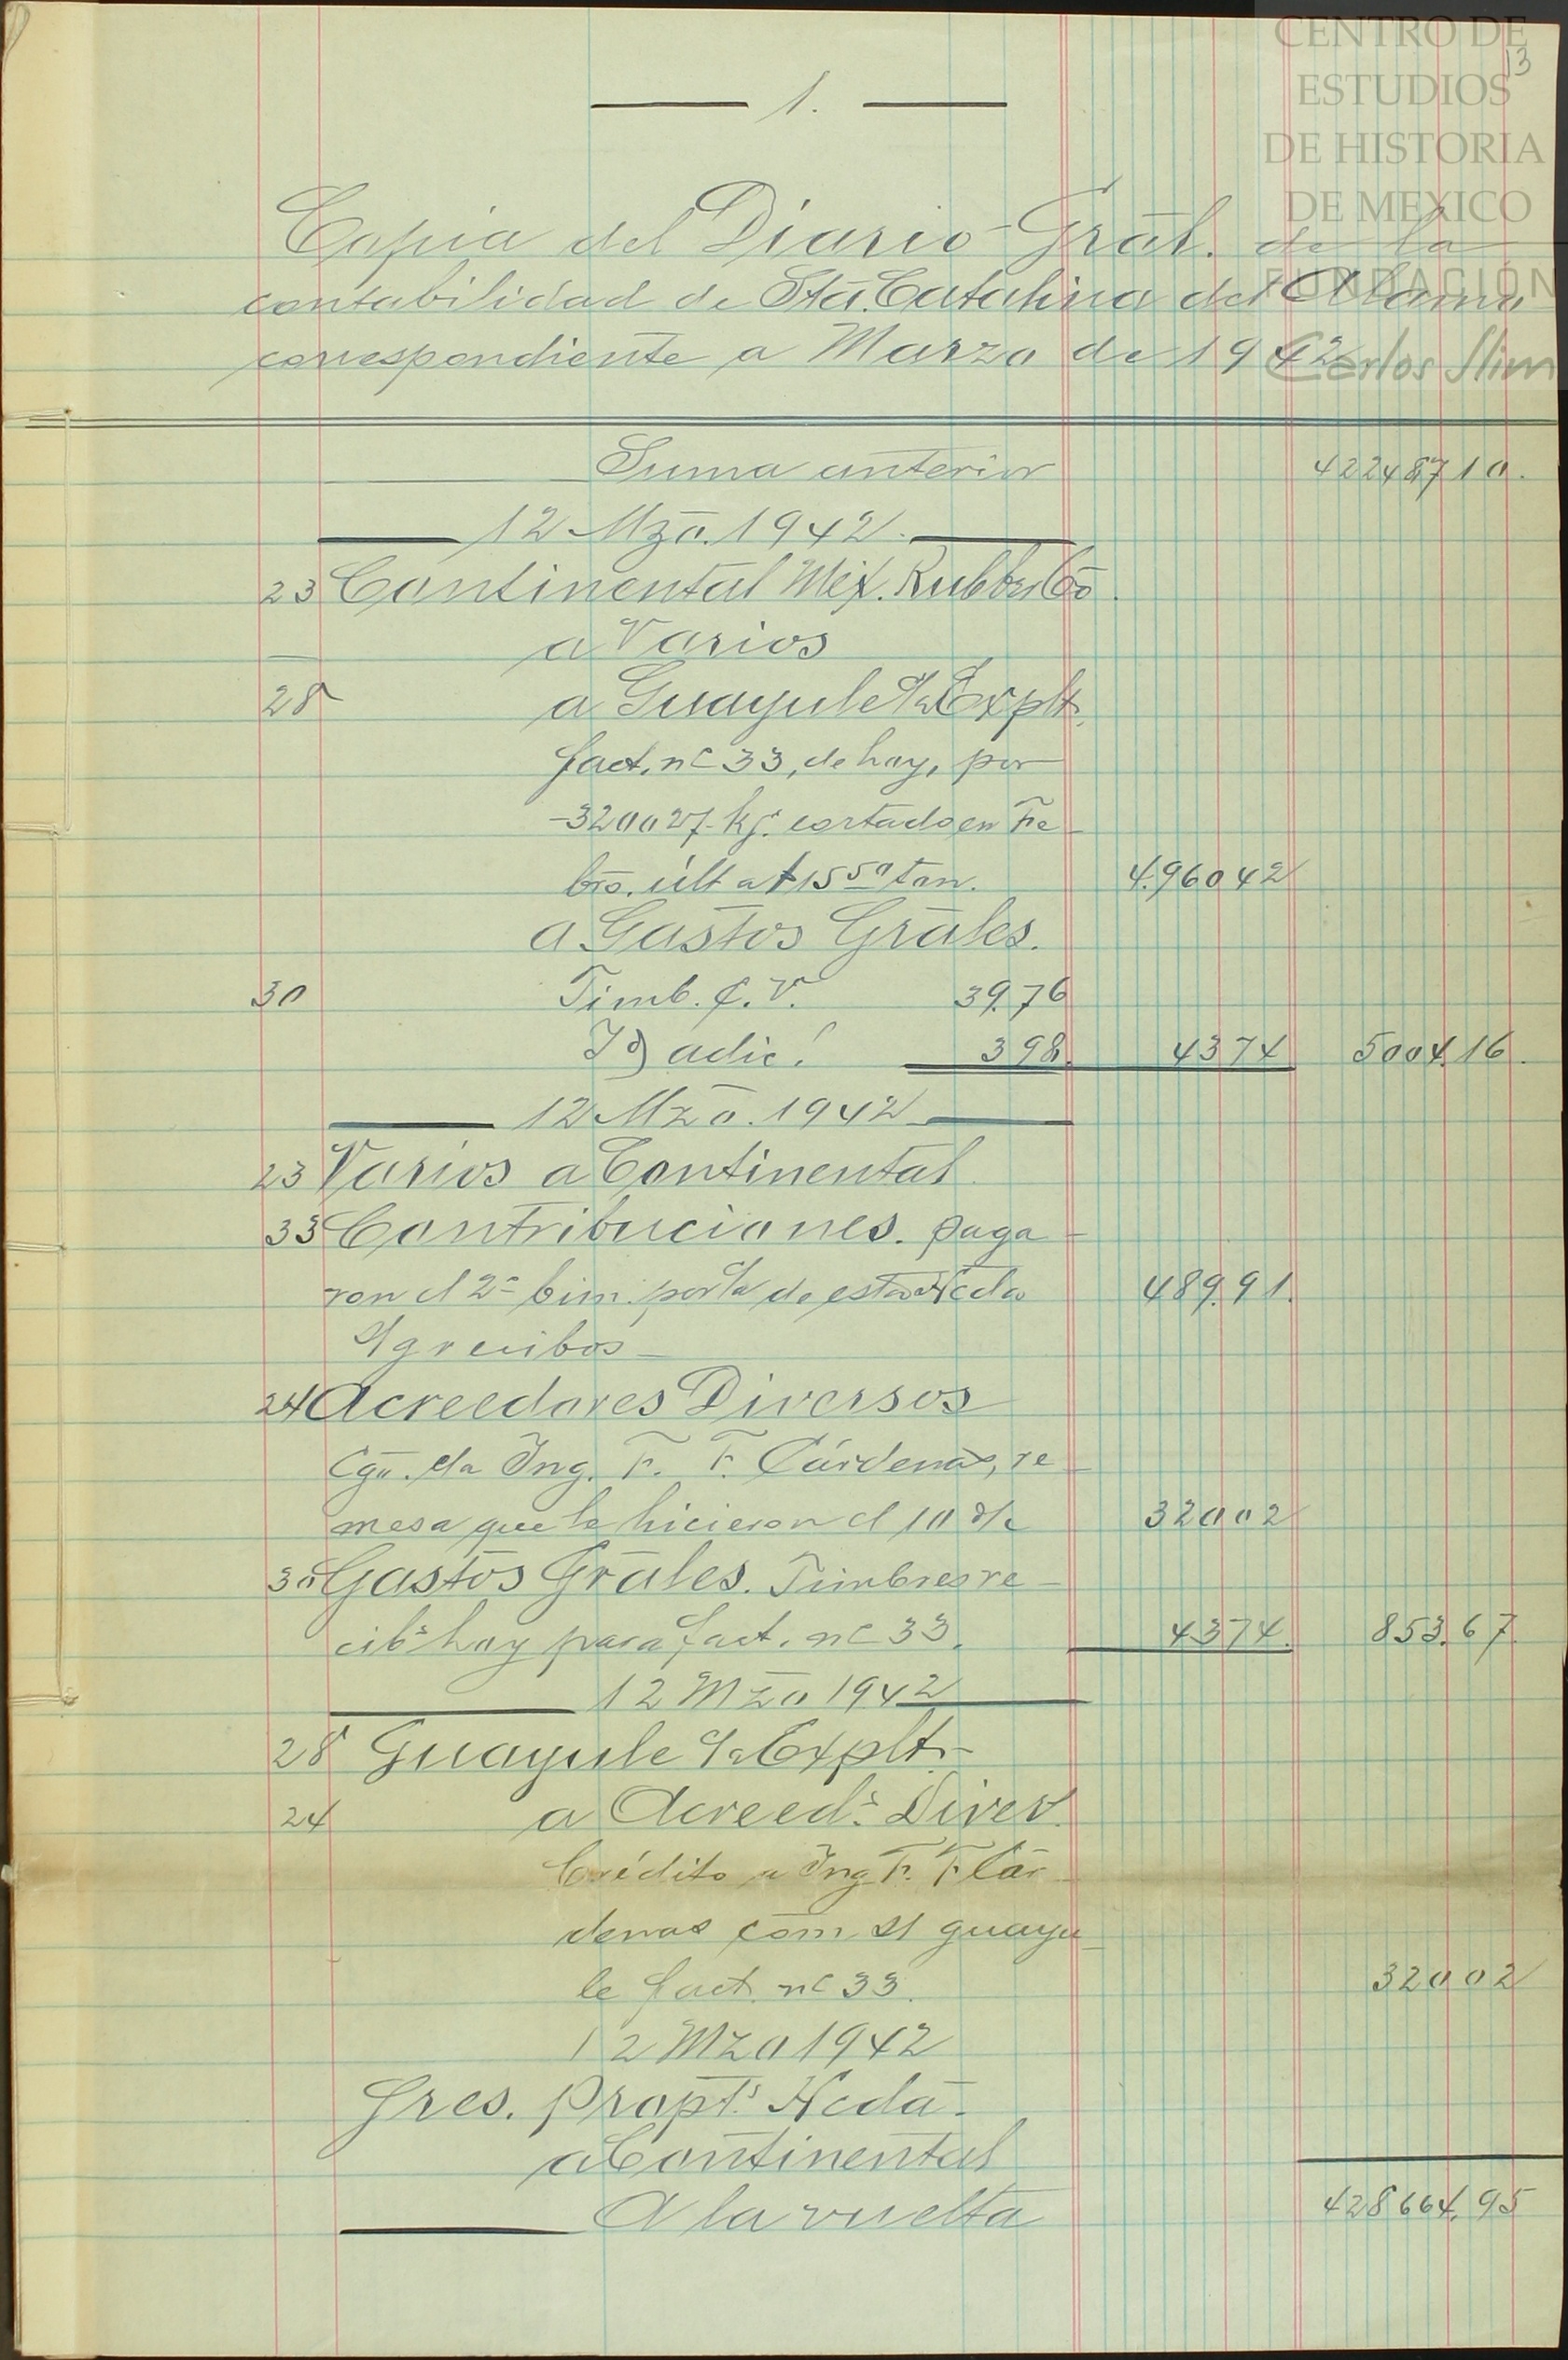 13
CENTRO DE
ESTUDIOS
DE HISTORIA
DE MEXICO
FUNDACIÓN
Carlos Slim
1.
Copia del Diario Grāl. de la
contabilidad de Sta. Catalina del Alamo
correspondiente a Marzo de 1942
Suma anterior 422487 10.
12 Mzō. 1942.
23 Continental Mex. Rubber Cō.
a Varios
28 a Guayule c/a Explt.
fact. nº 33, de hoy, por
320027 kgs. cortado en Fe-
bro. últ a $15 50 ton. 4.960 42
a Gastos Grāles.
30 Timb. C. V. 39.76
Id) adic! 3 98. 43 74 5004.16.
12 Mzō. 1942
23 Varios a Continental.
33 Contribuciones. paga-
ron el 2º bim. por de esta Hcda 489.91.
recibos
24 Acreedores Diversos
Cgo. da Ing. F. F. Cárdenas, re-
mesa que le hicieron el 10 d/c 320 02
30 Gastos Grāles. Timbres re-
cibs hoy para fact. nº 33. 43 74. 853.67.
12 Mzō 1942
28 Guayule c/a Explt.
24 a Acreeds. Divers.
Crédito a Ing F. F. Cár-
denas com s/ guayu-
le fact. nº 33. 320 02
12 Mzo 1942
Sres. Propts. Hcda.
a Continental
A la vuelta 428664.95